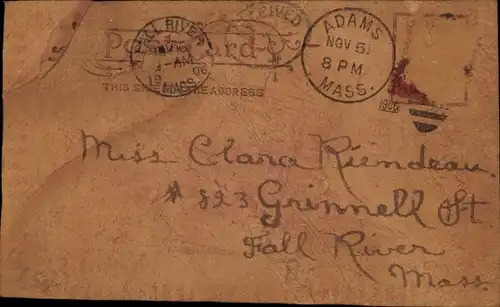 RECEIVED
FALL RIVER
NOV
-AM
MASS. 06
Post Card
THIS SIDE ADDRESS
ADAMS
NOV 5
8 PM
MASS.
1906
Miss Clara Riendeau.
823 Grinnell St
Fall River
Mass.